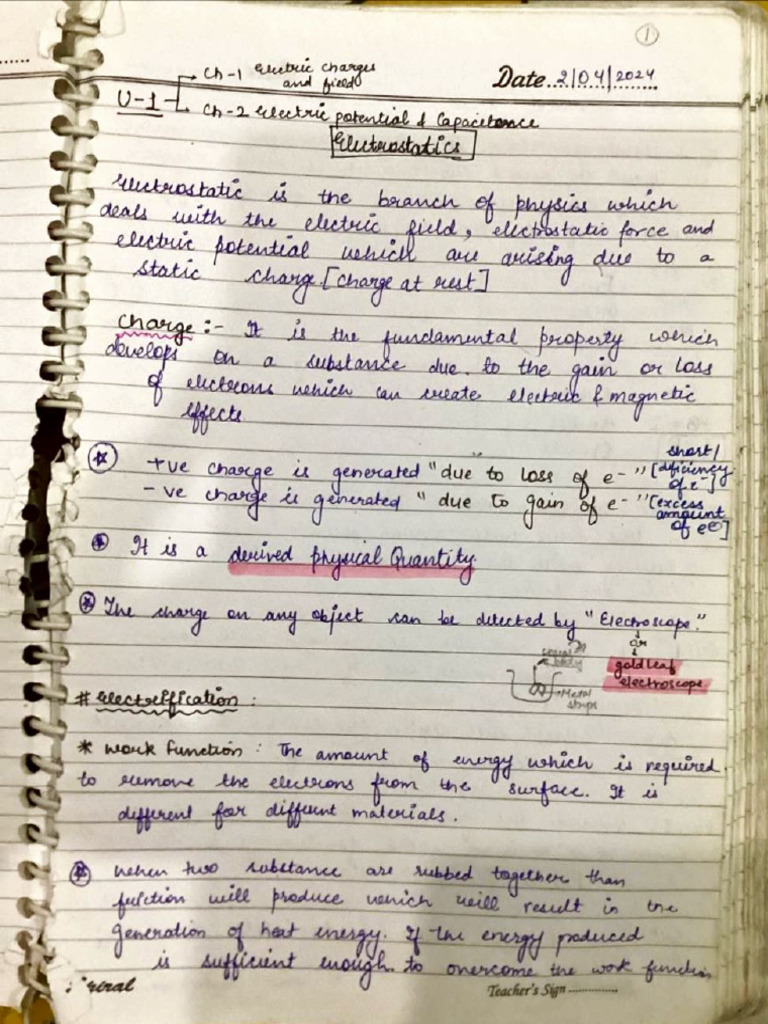 ①
Ch-1 Electric charges
and field
Date 2/04/2024
U-1
Ch-2 Electric potential & Capacitance
Electrostatics
Electrostatic is the branch of physics which
deals with the electric field, electrostatic force and
electric potential which are arising due to a
static charge. [charge at rest]
Charge :- It is the fundamental property which
develops on a substance due to the gain or loss
of electrons which can create electric & magnetic
effects
short/
+ve charge is generated "due to loss of e-" [dificiency
of e-]
-ve charge is generated "due to gain of e-" [excess
amount
of e⊖]
It is a derived physical Quantity.
The charge on any object can be detected by "Electroscope."
or
gold leaf
electroscope
body
Metal
strips
# Electrification :
* Work function : The amount of energy which is required
to remove the electrons from the surface. It is
different for different materials.
When two substance are rubbed together than
friction will produce which will result in the
generation of heat energy. If the energy produced
is sufficient enough to overcome the work function
Teacher's Sign